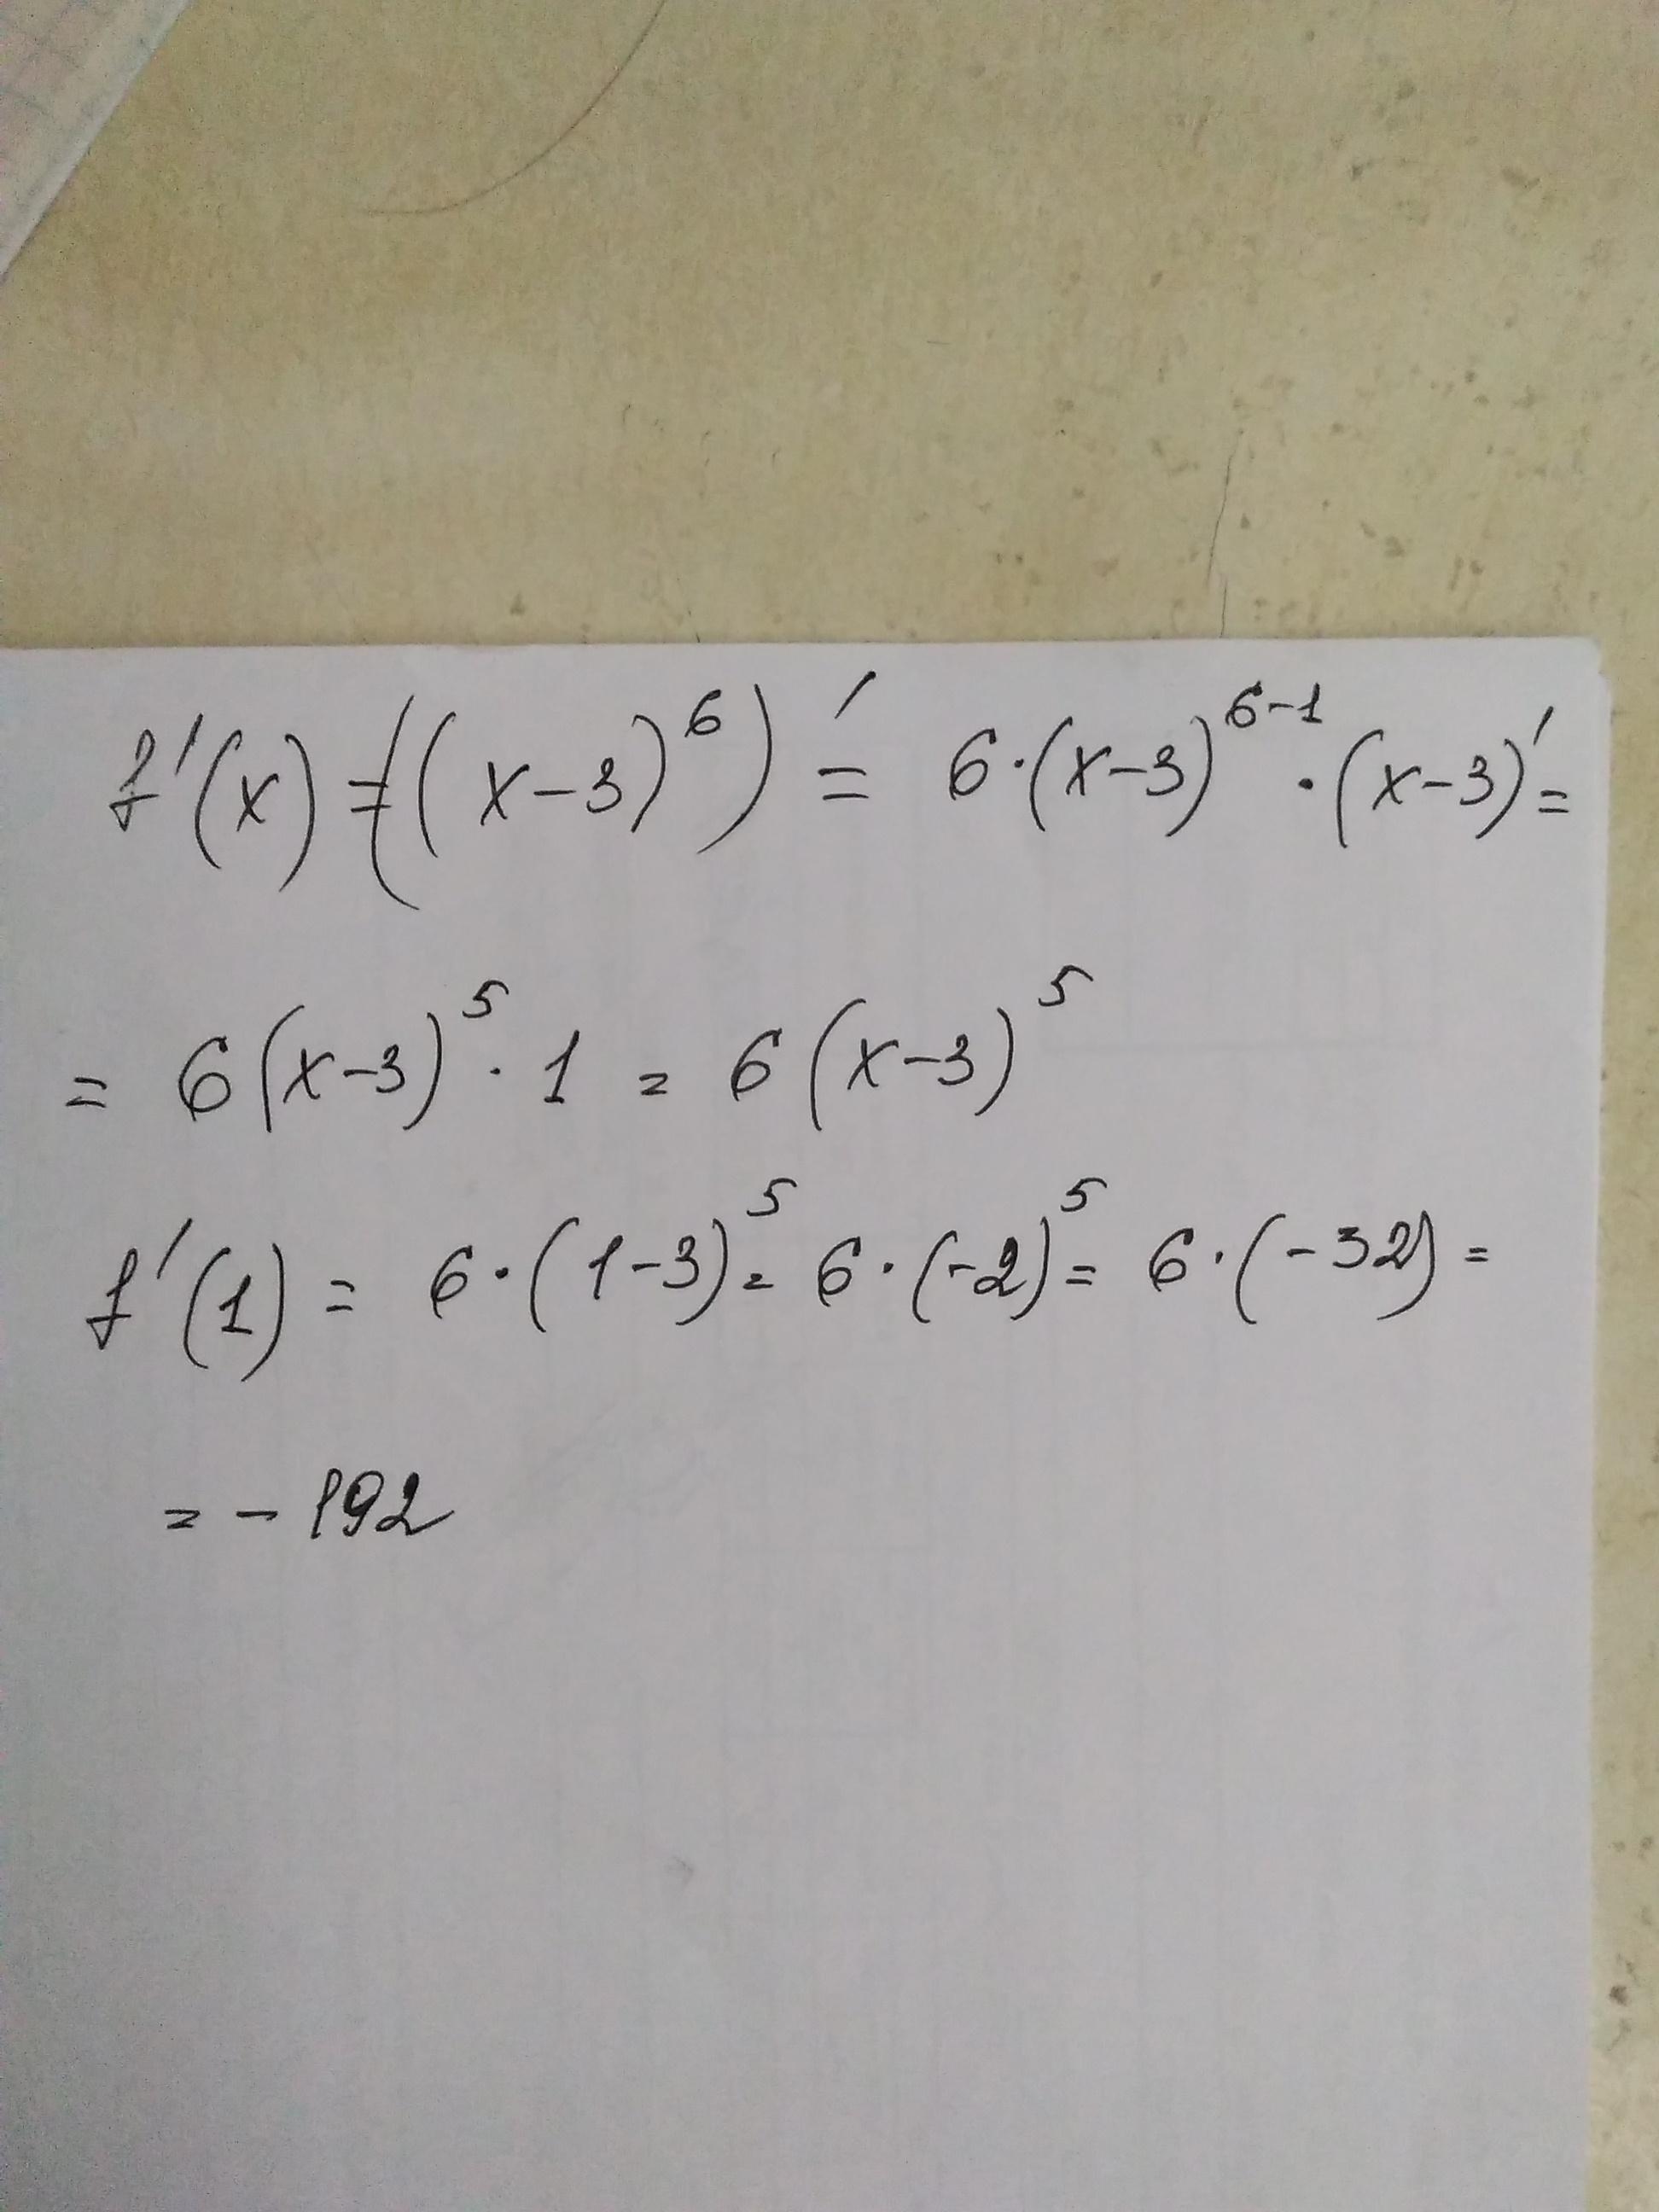 f'(x) = ((x-3)^6)' = 6·(x-3)^{6-1}·(x-3)' =
= 6(x-3)^5 · 1 = 6(x-3)^5
f'(1) = 6·(1-3)^5 = 6·(-2)^5 = 6·(-32) =
= -192